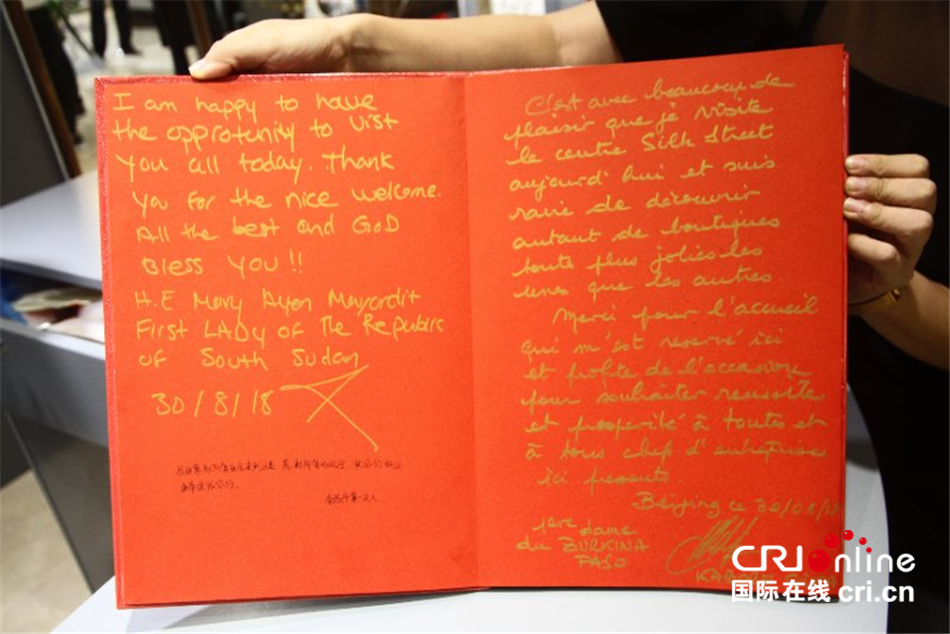 I am happy to have
the opprotunity to vist
you all today. Thank
you for the nice welcome.
All the best and GOD
Bless YOU !!
H.E Mary Ayen Mayardit
First LADy of The Republic
of South Sudan
30/8/18
南苏丹第一夫人
C'est avec beaucoup de
plaisir que je visite
le centre Silk Street
aujourd'hui et suis
ravie de découvrir
autant de boutiques
toutes plus jolies les
unes que les autres.
Merci pour l'accueil
qui m'est reservé ici
et profite de l'occasion
pour souhaiter reussite
et prosperité à toutes et
à tous chef d'entreprises
ici presents.
Beijing ce 30/08/18
1ere dame
du BURKINA
FASO
CRI Online
国际在线 cri.cn